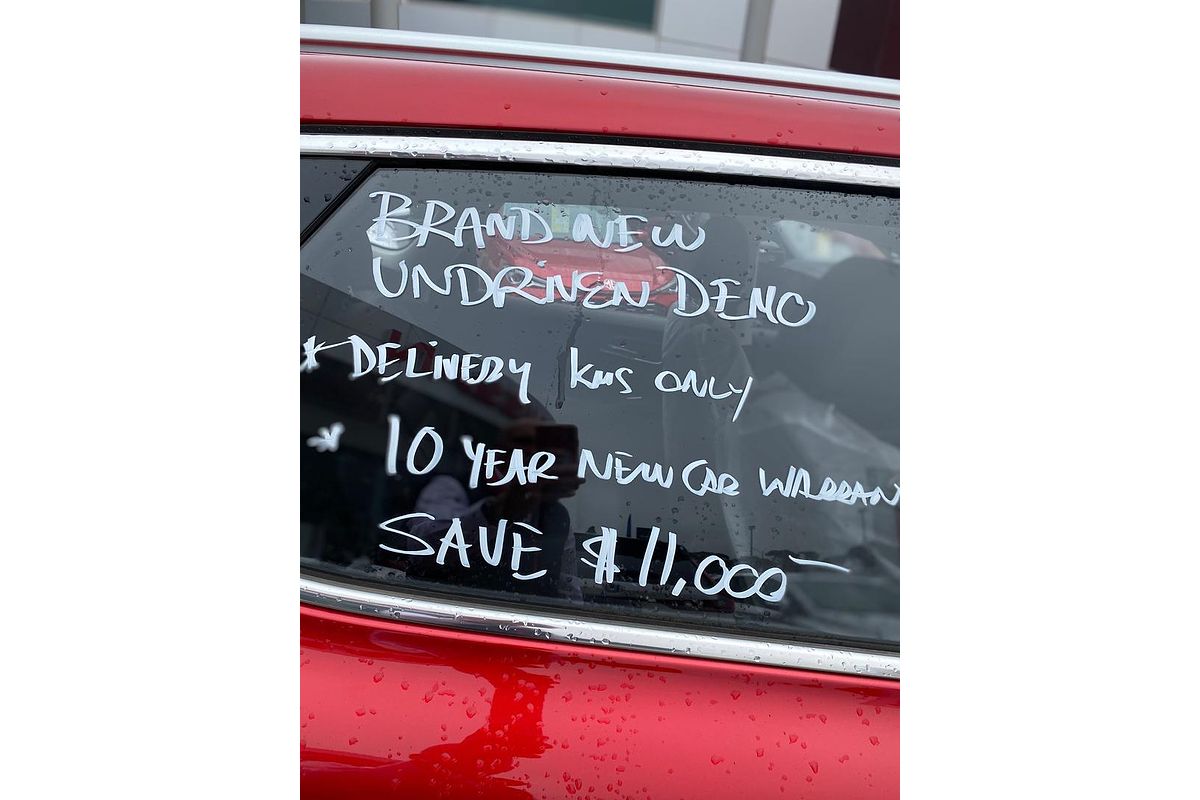 BRAND NEW
UNDRIVEN DEMO
* DELIVERY kms ONLY
* 10 YEAR NEW CAR WARRAN
SAVE $11,000-